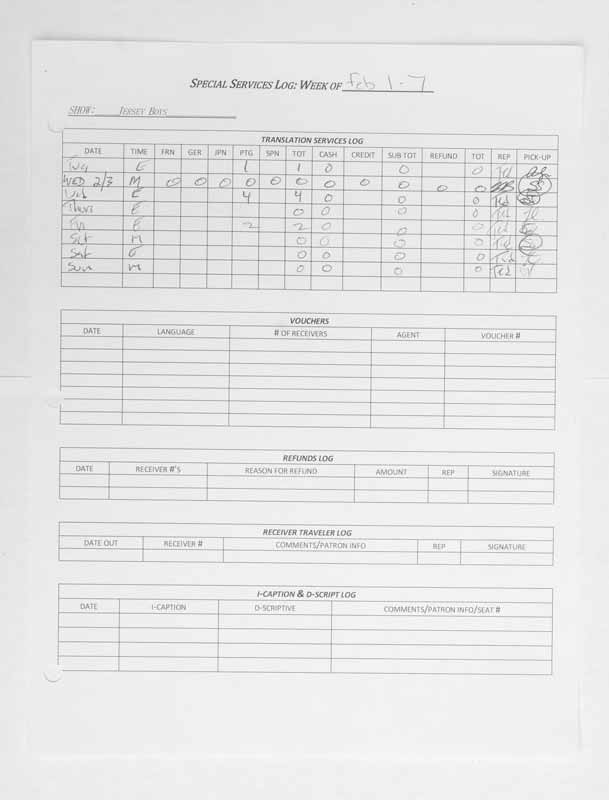 SPECIAL SERVICES LOG: WEEK OF Feb 1-7
SHOW: JERSEY BOYS
TRANSLATION SERVICES LOG
DATE TIME FRN GER JPN PTG SPN TOT CASH CREDIT SUB TOT REFUND TOT REP PICK-UP
Tue E 1 1 0 0 0 Ted
WED 2/3 M 0 0 0 0 0 0 0 0 0 0 0
Wed E 4 4 0 0 0 Ted
Thurs E 0 0 0 0 Ted
Fri E 2 2 0 0 0 Ted
Sat M 0 0 0 0 Ted
Sat E 0 0 0 0 Ted
Sun M 0 0 0 0 Ted
VOUCHERS
DATE LANGUAGE # OF RECEIVERS AGENT VOUCHER #
REFUNDS LOG
DATE RECEIVER #'S REASON FOR REFUND AMOUNT REP SIGNATURE
RECEIVER TRAVELER LOG
DATE OUT RECEIVER # COMMENTS/PATRON INFO REP SIGNATURE
I-CAPTION & D-SCRIPT LOG
DATE I-CAPTION D-SCRIPTIVE COMMENTS/PATRON INFO/SEAT #